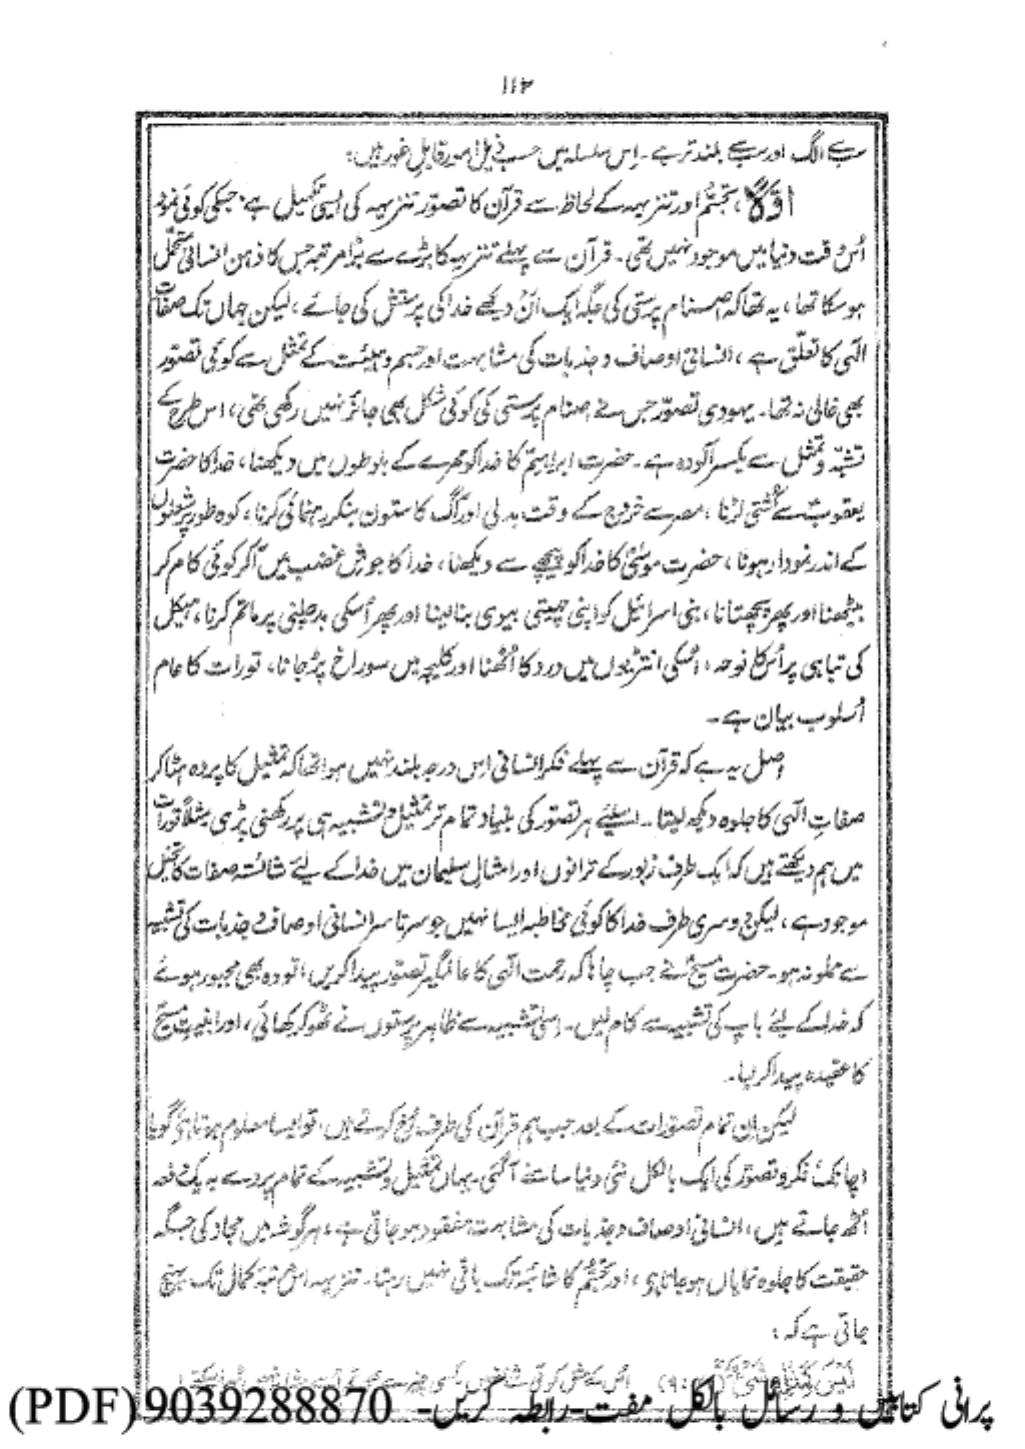 ۱۱۴
سب سے الگ اور سب سے بلند تر ہے۔ اِس سلسلہ میں حسب ذیل امور قابل غور ہیں:
اوّلاً، تجسّم اور تنزیہہ کے لحاظ سے قرآن کا تصوّر تنزیہہ کی ایسی تکمیل ہے، جسکی کوئی نمود
اُس وقت دنیا میں موجود نہیں تھی۔ قرآن سے پہلے تنزیہہ کا بڑے سے بڑا مرتبہ جس کا ذہن انسانی متحمل
ہو سکا تھا، یہ تھا کہ اصنام پرستی کی جگہ ایک اَن دیکھے خدا کی پرستش کی جائے، لیکن جہاں تک صفات
الٰہی کا تعلّق ہے، انسانی اوصاف و جذبات کی مشابہت اور جسم و ہیئت کے تمثل سے کوئی تصوّر
بھی خالی نہ تھا۔ یہودی تصوّر جس نے اصنام پرستی کی کوئی شکل بھی جائز نہیں رکھی تھی، اس طرح کے
تشبّہ و تمثل سے یکسر آلودہ ہے۔ حضرت ابراہیمؑ کا خدا کو ممرے کے بلوطوں میں دیکھنا، خدا کا حضرت
یعقوبؑ سے کُشتی لڑنا، مصر سے خروج کے وقت بدلی اور آگ کا ستون بنکر رہنمائی کرنا، کوہ طور پر شعلوں
کے اندر نمودار ہونا، حضرت موسٰیؑ کا خدا کو پیچھے سے دیکھنا، خدا کا جوشِ غضب میں آکر کوئی کام کر
بیٹھنا اور پھر پچھتانا، بنی اسرائیل کو اپنی چہیتی بیوی بنا لینا اور پھر اُسکی بد چلنی پر ماتم کرنا، ہیکل
کی تباہی پر اُس کا نوحہ، اُسکی انتڑیوں میں درد کا اُٹھنا اور کلیجہ میں سوراخ پڑ جانا، تورات کا عام
اُسلوب بیان ہے۔
اصل یہ ہے کہ قرآن سے پہلے فکر انسانی اِس درجہ بلند نہیں ہوا تھا کہ تمثیل کا پردہ ہٹا کر
صفاتِ الٰہی کا جلوہ دیکھ لیتا۔ اسلیئے ہر تصوّر کی بنیاد تمام تر تمثیل و تشبیہ ہی پر رکھنی پڑی مثلاً تورات
میں ہم دیکھتے ہیں کہ ایک طرف زبور کے ترانوں اور امثال سلیمان میں خدا کے لیئے شائستہ صفات کا تخیل
موجود ہے، لیکن دوسری طرف خدا کا کوئی مخاطبہ ایسا نہیں جو سرتاسر انسانی اوصاف و جذبات کی تشبیہ
سے مملو نہ ہو۔ حضرت مسیحؑ نے جب چاہا کہ رحمت الٰہی کا عالمگیر تصوّر پیدا کریں، تو وہ بھی مجبور ہوئے
کہ خدا کے لیئے باپ کی تشبیہ سے کام لیں۔ اِسی تشبیہ سے ظاہر پرستوں نے ٹھوکر کھائی، اور ابنیتِ مسیح
کا عقیدہ پیدا کر لیا۔
لیکن اِن تمام تصوّرات کے بعد جب ہم قرآن کی طرف رُخ کرتے ہیں، تو ایسا معلوم ہوتا ہے گویا
اچانک فکر و تصوّر کی ایک بالکل نئی دنیا سامنے آگئی۔ یہاں تمثیل و تشبیہ کے تمام پردے بہ یک دفعہ
اُٹھ جاتے ہیں، انسانی اوصاف و جذبات کی مشابہت مفقود ہو جاتی ہے، ہر گوشہ میں مجاز کی جگہ
حقیقت کا جلوہ نمایاں ہو جاتا ہے، اور تجسُّم کا شائبہ تک باقی نہیں رہتا۔ تنزیہہ اس مرتبہ کمال تک پہنچ
جاتی ہے کہ:
لَيْسَ كَمِثْلِهٖ شَيْءٌ (۹:) اُس کے مثل کوئی شے نہیں کسی چیز سے بھی تم اُسے مشابہ نہیں ٹھہرا سکتے!
پرانی کتابیں و رسائل بالکل مفت-رابطہ کریں- 9039288870 (PDF)